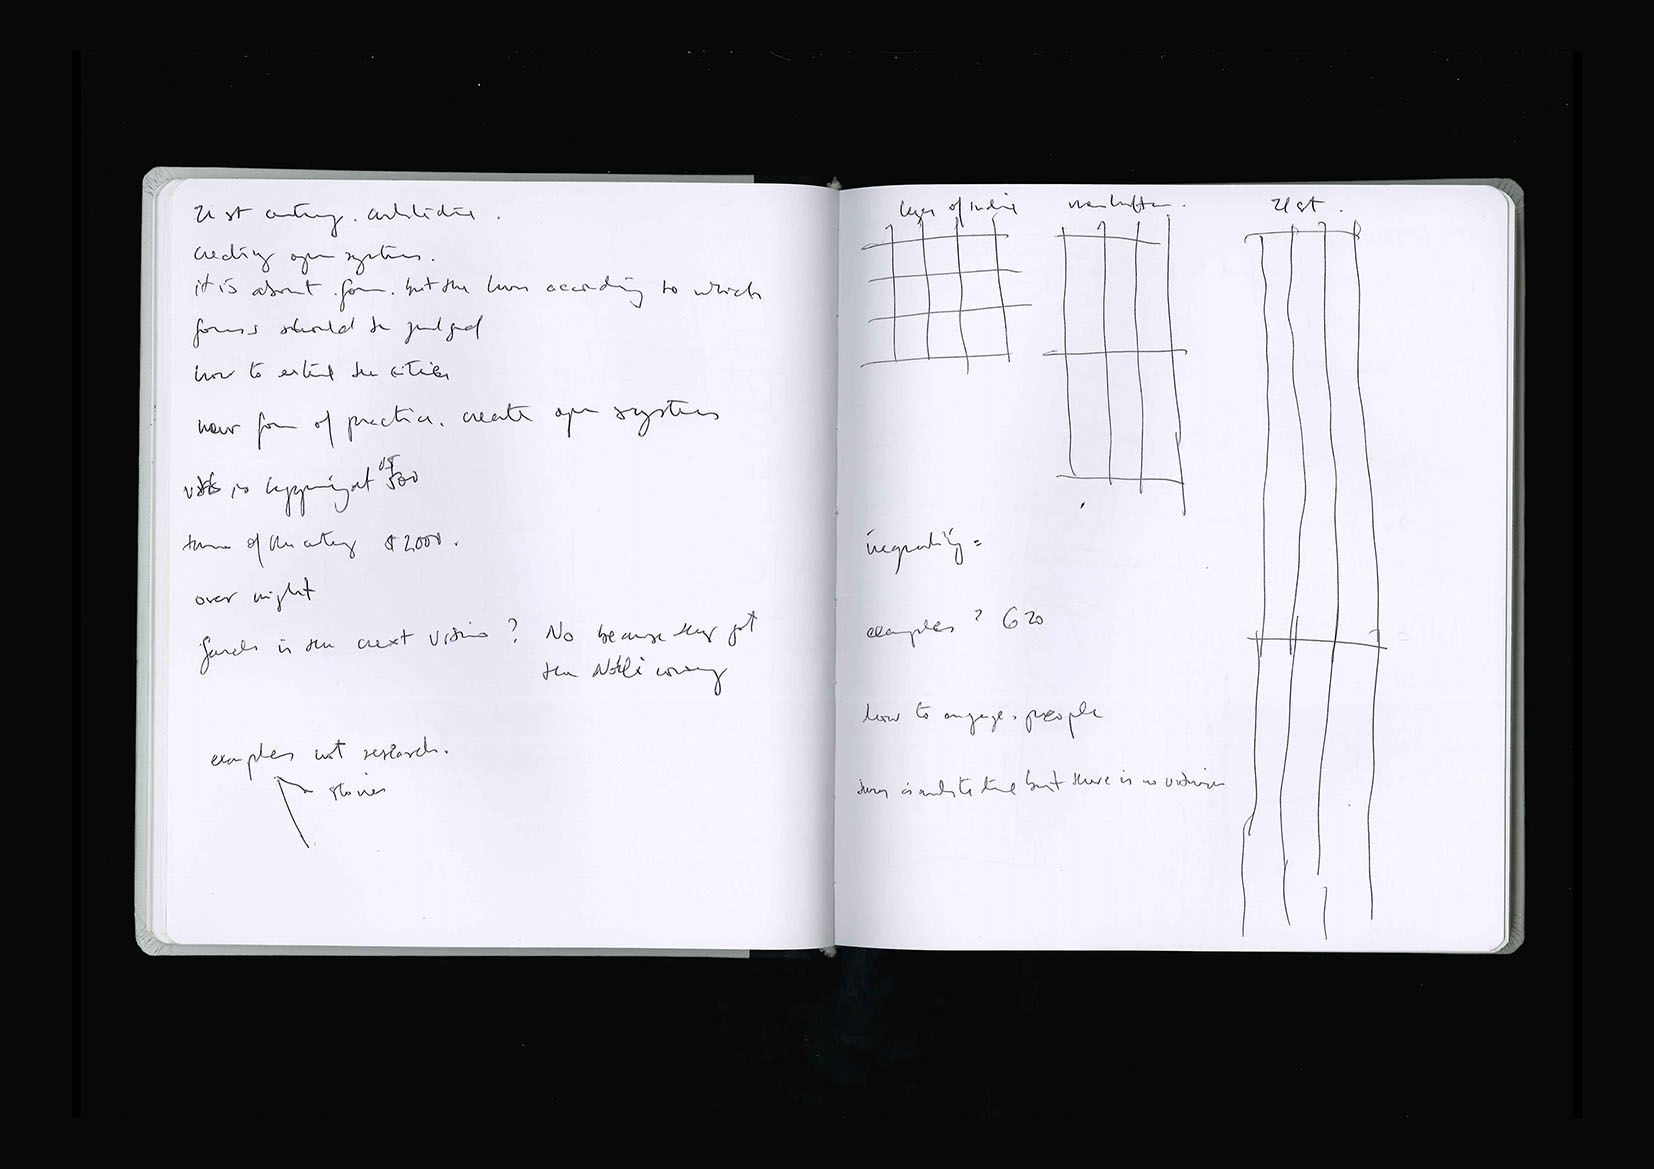 21st century. architecture.
creating open systems.
it is about form. but the laws according to which
forms should be judged
how to extend the cities
new form of practice. create open systems
is happening at
turn of the century $2000.
over night
is the next vision? No because they got
the wrong
examples not research.
stories
laws of Indies
manhattan.
21st.
inequality =
examples? G20
how to engage. people
but there is no vision